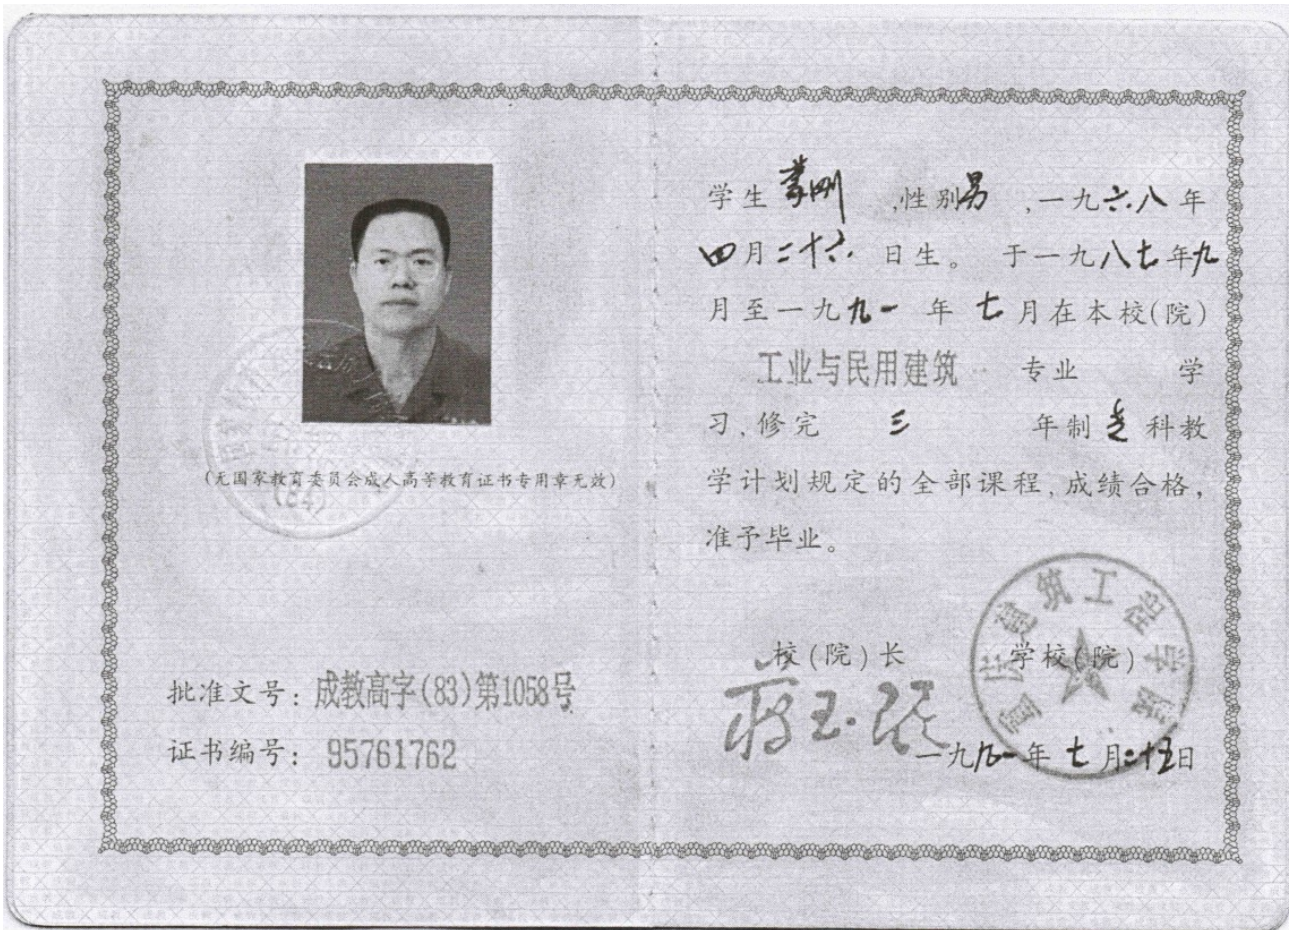 (无国家教育委员会成人高等教育证书专用章无效)
批准文号：成教高字(83)第1058号
证书编号：95761762
学生 刚 ,性别男 ,一九六八年
四月二十六 日生。 于一九八七年九
月至一九九一 年 七月在本校(院)
工业与民用建筑 专业 学
习、修完 三 年制 专 科教
学计划规定的全部课程,成绩合格,
准予毕业。
校(院)长 学校(院)
蒋玉
建筑工程学院
一九九一年 七 月二十五日